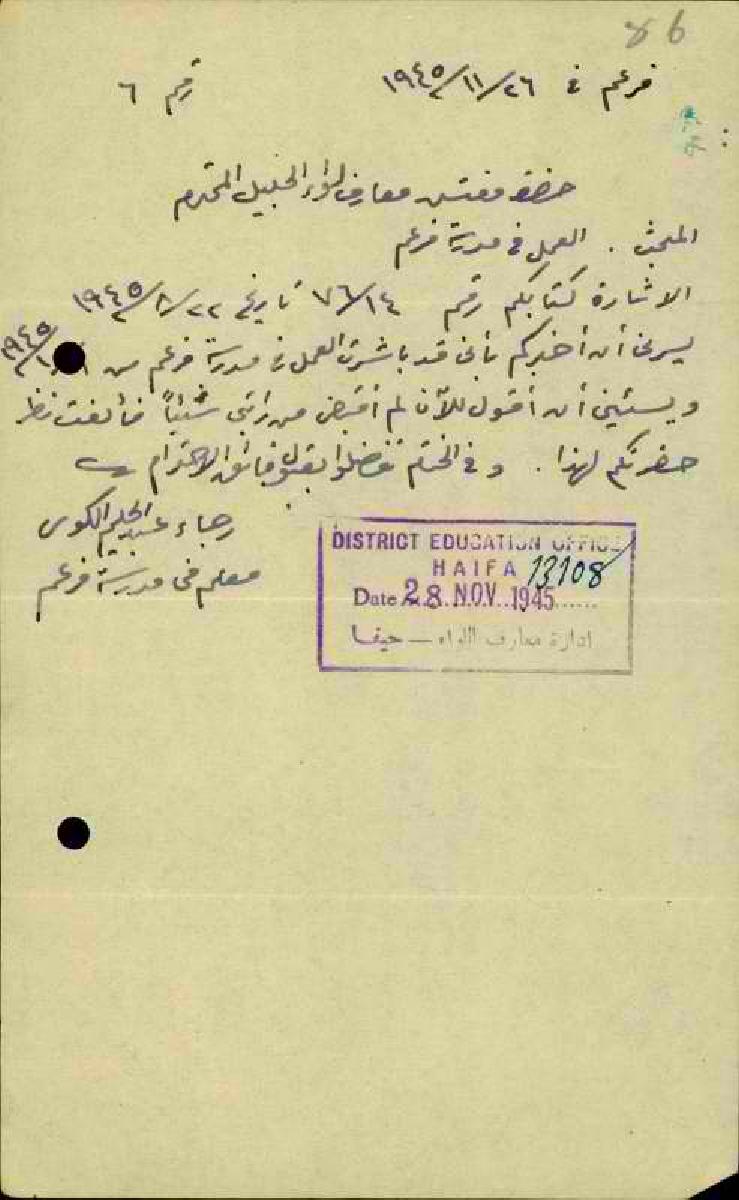 86
فرعم في ٢٦/١١/١٩٤٥ رقم ٦
حضرة مفتش معارف لواء الجليل المحترم
المبحث . العمل في مدرسة فرعم
الاشارة كتابكم رقم ٧٦/١٤ تاريخ ٢٢/٨/١٩٤٥
يسرني أن أخبركم بأني قد باشرت العمل في مدرسة فرعم من ١٩٤٥
ويسئني أن أقول للآن لم أقبض من راتبي شيئاً فألفت نظر
حضرتكم لهذا . وفي الختام تفضلوا بقبول فائق الاحترام
رجاء عبد الحليم
معلم في مدرسة فرعم
DISTRICT EDUCATION OFFICE
HAIFA 13108
Date 28 NOV 1945
ادارة معارف اللواء – حيفا